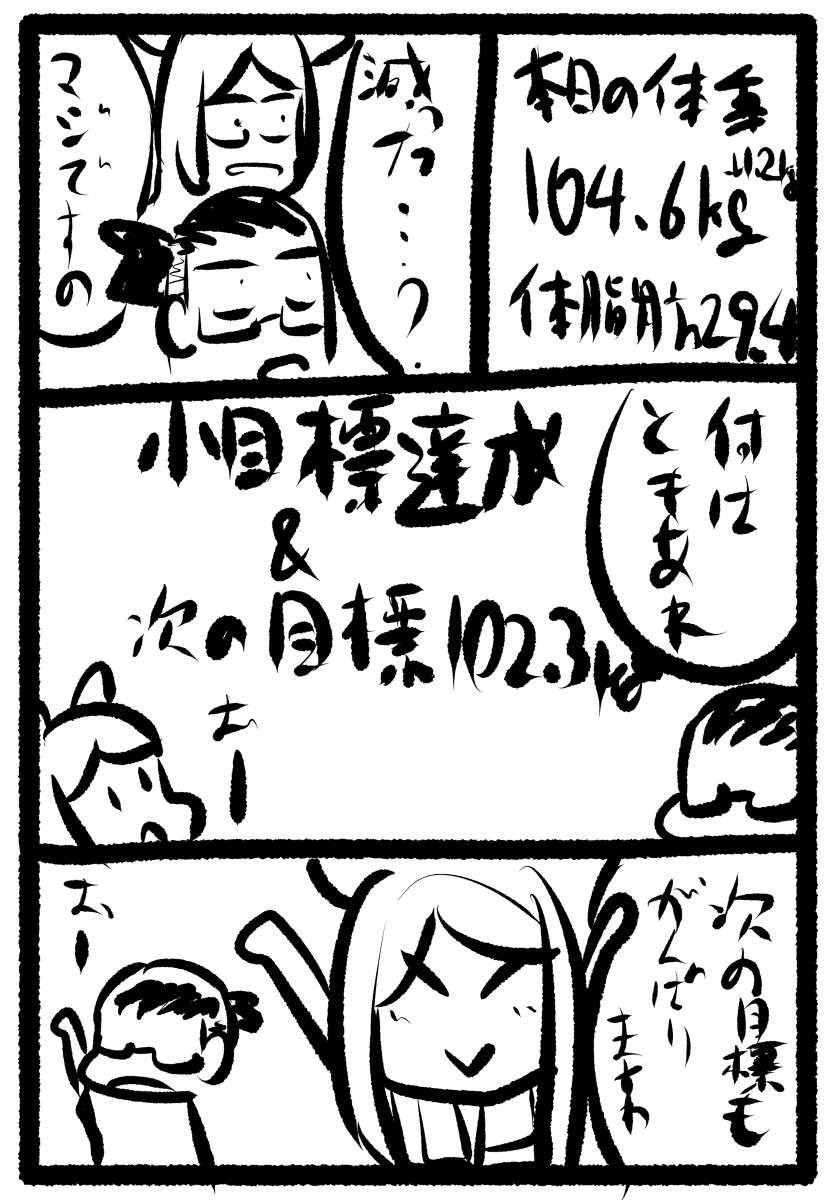 本日の体重
104.6kg
+1.2kg
体脂肪
29.4
減った…?
マジですの
付は
ときあれ
小目標達成
&
次の目標102.3kg
おー
次の目標も
がんばり
ますわ
おー